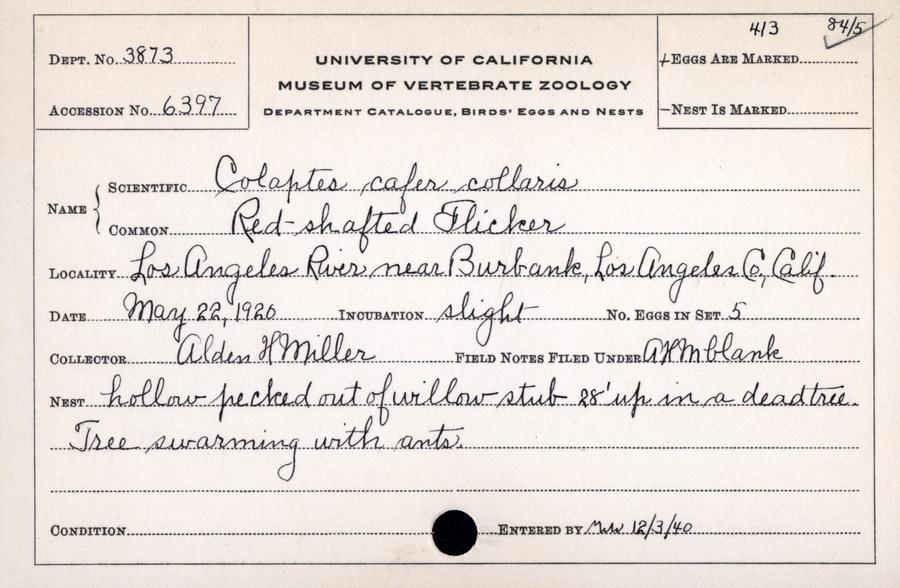 413 84/5
DEPT. NO. 3873
UNIVERSITY OF CALIFORNIA
EGGS ARE MARKED
MUSEUM OF VERTEBRATE ZOOLOGY
ACCESSION NO. 6397
DEPARTMENT CATALOGUE, BIRDS' EGGS AND NESTS
NEST IS MARKED
NAME
SCIENTIFIC Colaptes cafer collaris
COMMON Red-shafted Flicker
LOCALITY Los Angeles River near Burbank, Los Angeles Co., Calif.
DATE May 22, 1920 INCUBATION slight NO. EGGS IN SET 5
COLLECTOR Alden H Miller FIELD NOTES FILED UNDER AHM blank
NEST hollow pecked out of willow stub 28' up in a dead tree.
Tree swarming with ants.
CONDITION ENTERED BY 12/3/40